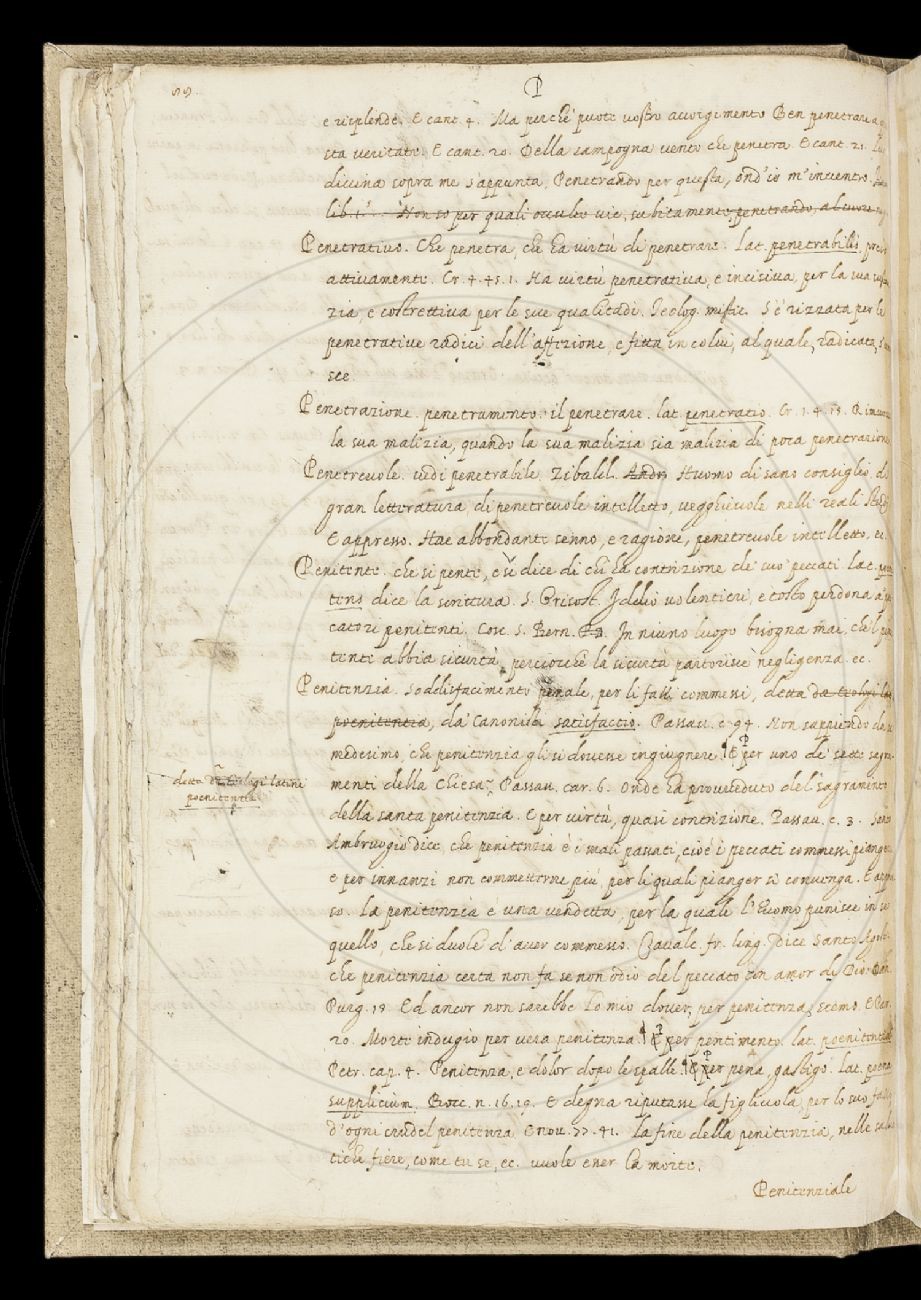 P
e risplende. E cant. 4. Ma perchè puote vostro accorgimento Ben penetrare a
sta veritate. E cant. 20. Della zampogna vento che penetra. E cant. 21.
divina sopra me s'appunta, Penetrando per questa, ond'io m'inventro.
Non so per quali occulte vie, subitamente penetrando, al cuore
Penetrativo. Che penetra, che ha virtù di penetrare. lat. penetrabilis, preso
attivamente. Cr. 4. 45. 1. Ha virtù penetrativa, e incisiva, per la sua
zia, e costrettiva per le sue qualitadi. Teolog. mistic. S'è rizzata per le
penetrative radici dell'affezione, e fitta in colui, al quale, radicata,
sce.
Penetrazione. penetramento. il penetrare. lat. penetratio. Cr. 1. 4. 15.
la sua malizia, quando la sua malizia sia malizia di poca penetrazione
Penetrevole. vedi penetrabile. Zibald. Andr. Huomo di sano consiglio, di
gran letteratura, di penetrevole intelletto, vegghievole nelli reali
E appresso. Hae abbondante senno, e ragione, penetrevole intelletto, ec.
Penitente. che si pente, e si dice di chi ha contrizione de' suoi peccati. lat. poeni
tens dice la scrittura. S. Grisost. Iddio volentieri, e tosto perdona a' pec
catori penitenti. Cosc. S. Bern. In niuno luogo bisogna mai, che 'l peni
tente abbia sicurtà, perciocchè la sicurtà partorisce negligenza. ec.
Penitenzia. Soddisfacimento penale, per li falli commessi, detta da teologi lat.
poenitentia, da Canonisti satisfactio. Passav. c. 94. Non sappiendo
medesimo, che penitenzia gli si dovesse ingiugnere. ¶ E per uno de' sette sagra
detta da Teologi latini
poenitentia
menti della Chiesa. Passav. car. 6. Onde ha provveduto del sagramento
della santa penitenzia. E per virtù, quasi contrizione. Passav. c. 3. Santo
Ambruogio dice, che penitenzia è i mali passati, cioè i peccati commessi piangere
e per innanzi non commetterne più, per li quali pianger si convenga. E appres
so. La penitenzia è una vendetta, per la quale l'huomo punisce in se
quello, che si duole d'aver commesso. Cavalc. fr. ling. Dice Santo Agost.
che penitenzia certa non fa se non odio del peccato con amor di Dio. Dan.
Purg. 13. Ed ancor non sarebbe Lo mio dover, per penitenza, scemo. E Par.
20. Morte indugio per vera penitenza. ¶ E per pentimento. lat. poenitentia
Petr. cap. 4. Penitenza, e dolor dopo le spalle. ¶ E per pena, gastigo. lat. poena
supplicium. Bocc. n. 16. 19. E degna riputasse la figliuola, per lo suo fallo
d'ogni crudel penitenza. E nov. 77. 41. la fine della penitenzia, nelle salva
tiche fiere, come tu se, ec. vuole esser la morte.
Penitenziale